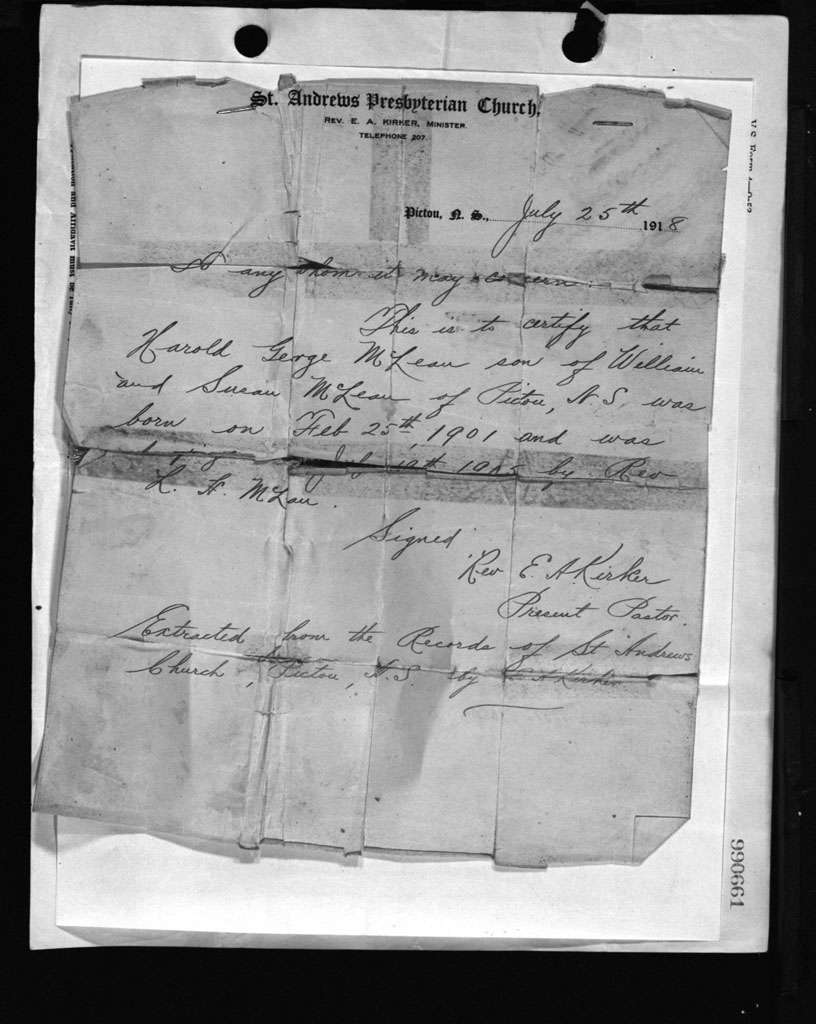 St. Andrews Presbyterian Church,
REV. E. A. KIRKER, MINISTER.
TELEPHONE 207.
Pictou, N. S., July 25th 1918
To any whom it may concern.
This is to certify that
Harold George McLean son of William
and Susan McLean of Pictou, N.S. was
born on Feb 25th, 1901 and was
19th 1905 by Rev
L. H. McLean.
Signed
Rev E. A. Kirker
Present Pastor.
Extracted from the Records of St Andrews
Church, Pictou, N.S. by E A Kirker
990661